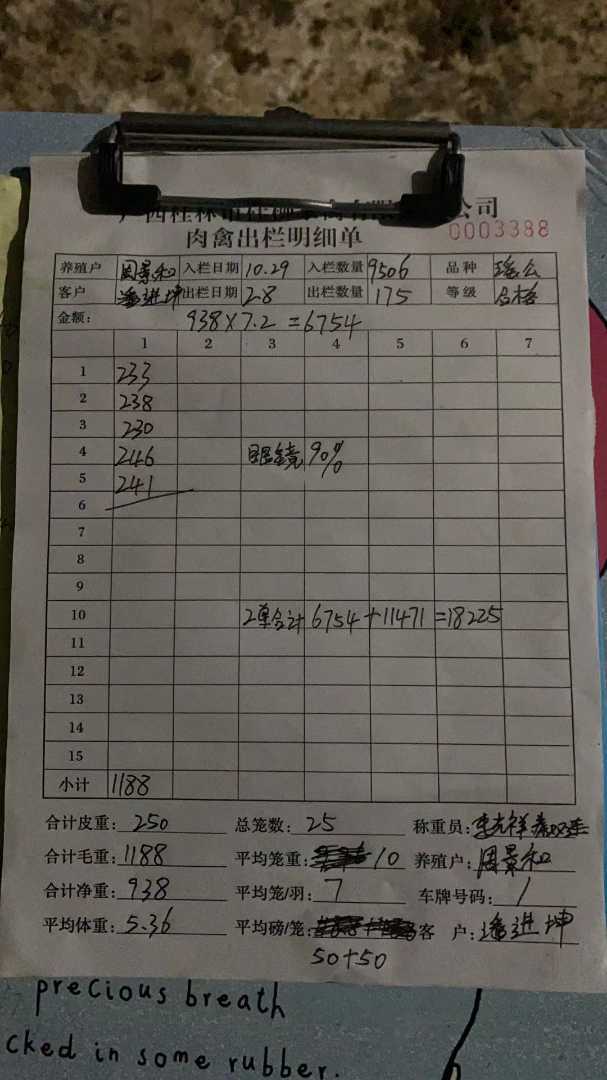 公司
肉禽出栏明细单 0003388
养殖户 周景和 入栏日期 10.29 入栏数量 9506 品种 瑶公
客户 潘进坤 出栏日期 2.8 出栏数量 175 等级 合格
金额: 938×7.2=6754
1 2 3 4 5 6 7
1 233
2 238
3 230
4 246 眼镜90%
5 241
6
7
8
9
10 2单合计 6754+11471=18225
11
12
13
14
15
小计 1188
合计皮重: 250 总笼数: 25 称重员:
合计毛重: 1188 平均笼重: 10 养殖户: 周景和
合计净重: 938 平均笼/羽: 7 车牌号码: /
平均体重: 5.36 平均磅/笼: 客 户: 潘进坤
50+50
precious breath
cked in some rubber.